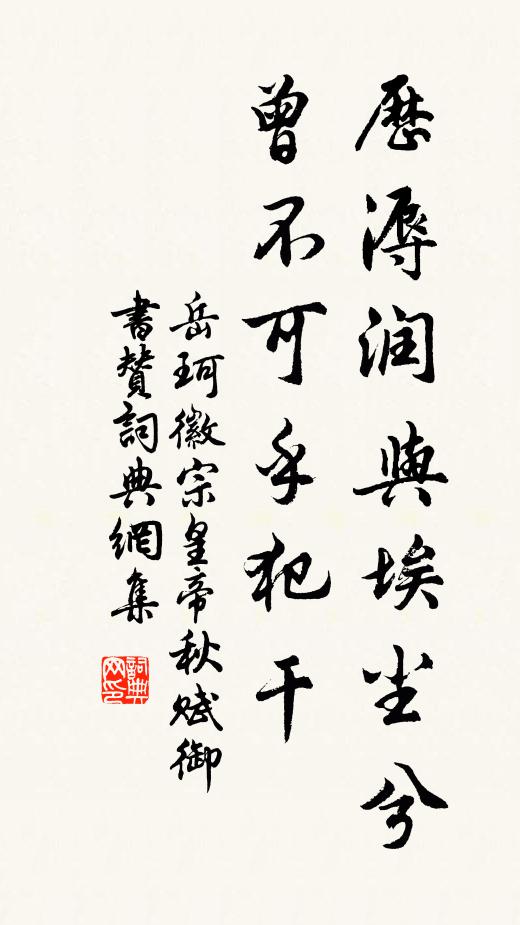 歷溽润與埃尘兮
曾不可乎犯干
岳珂徽宗皇帝秋赋御
書賛詞典網集
詞典
网印